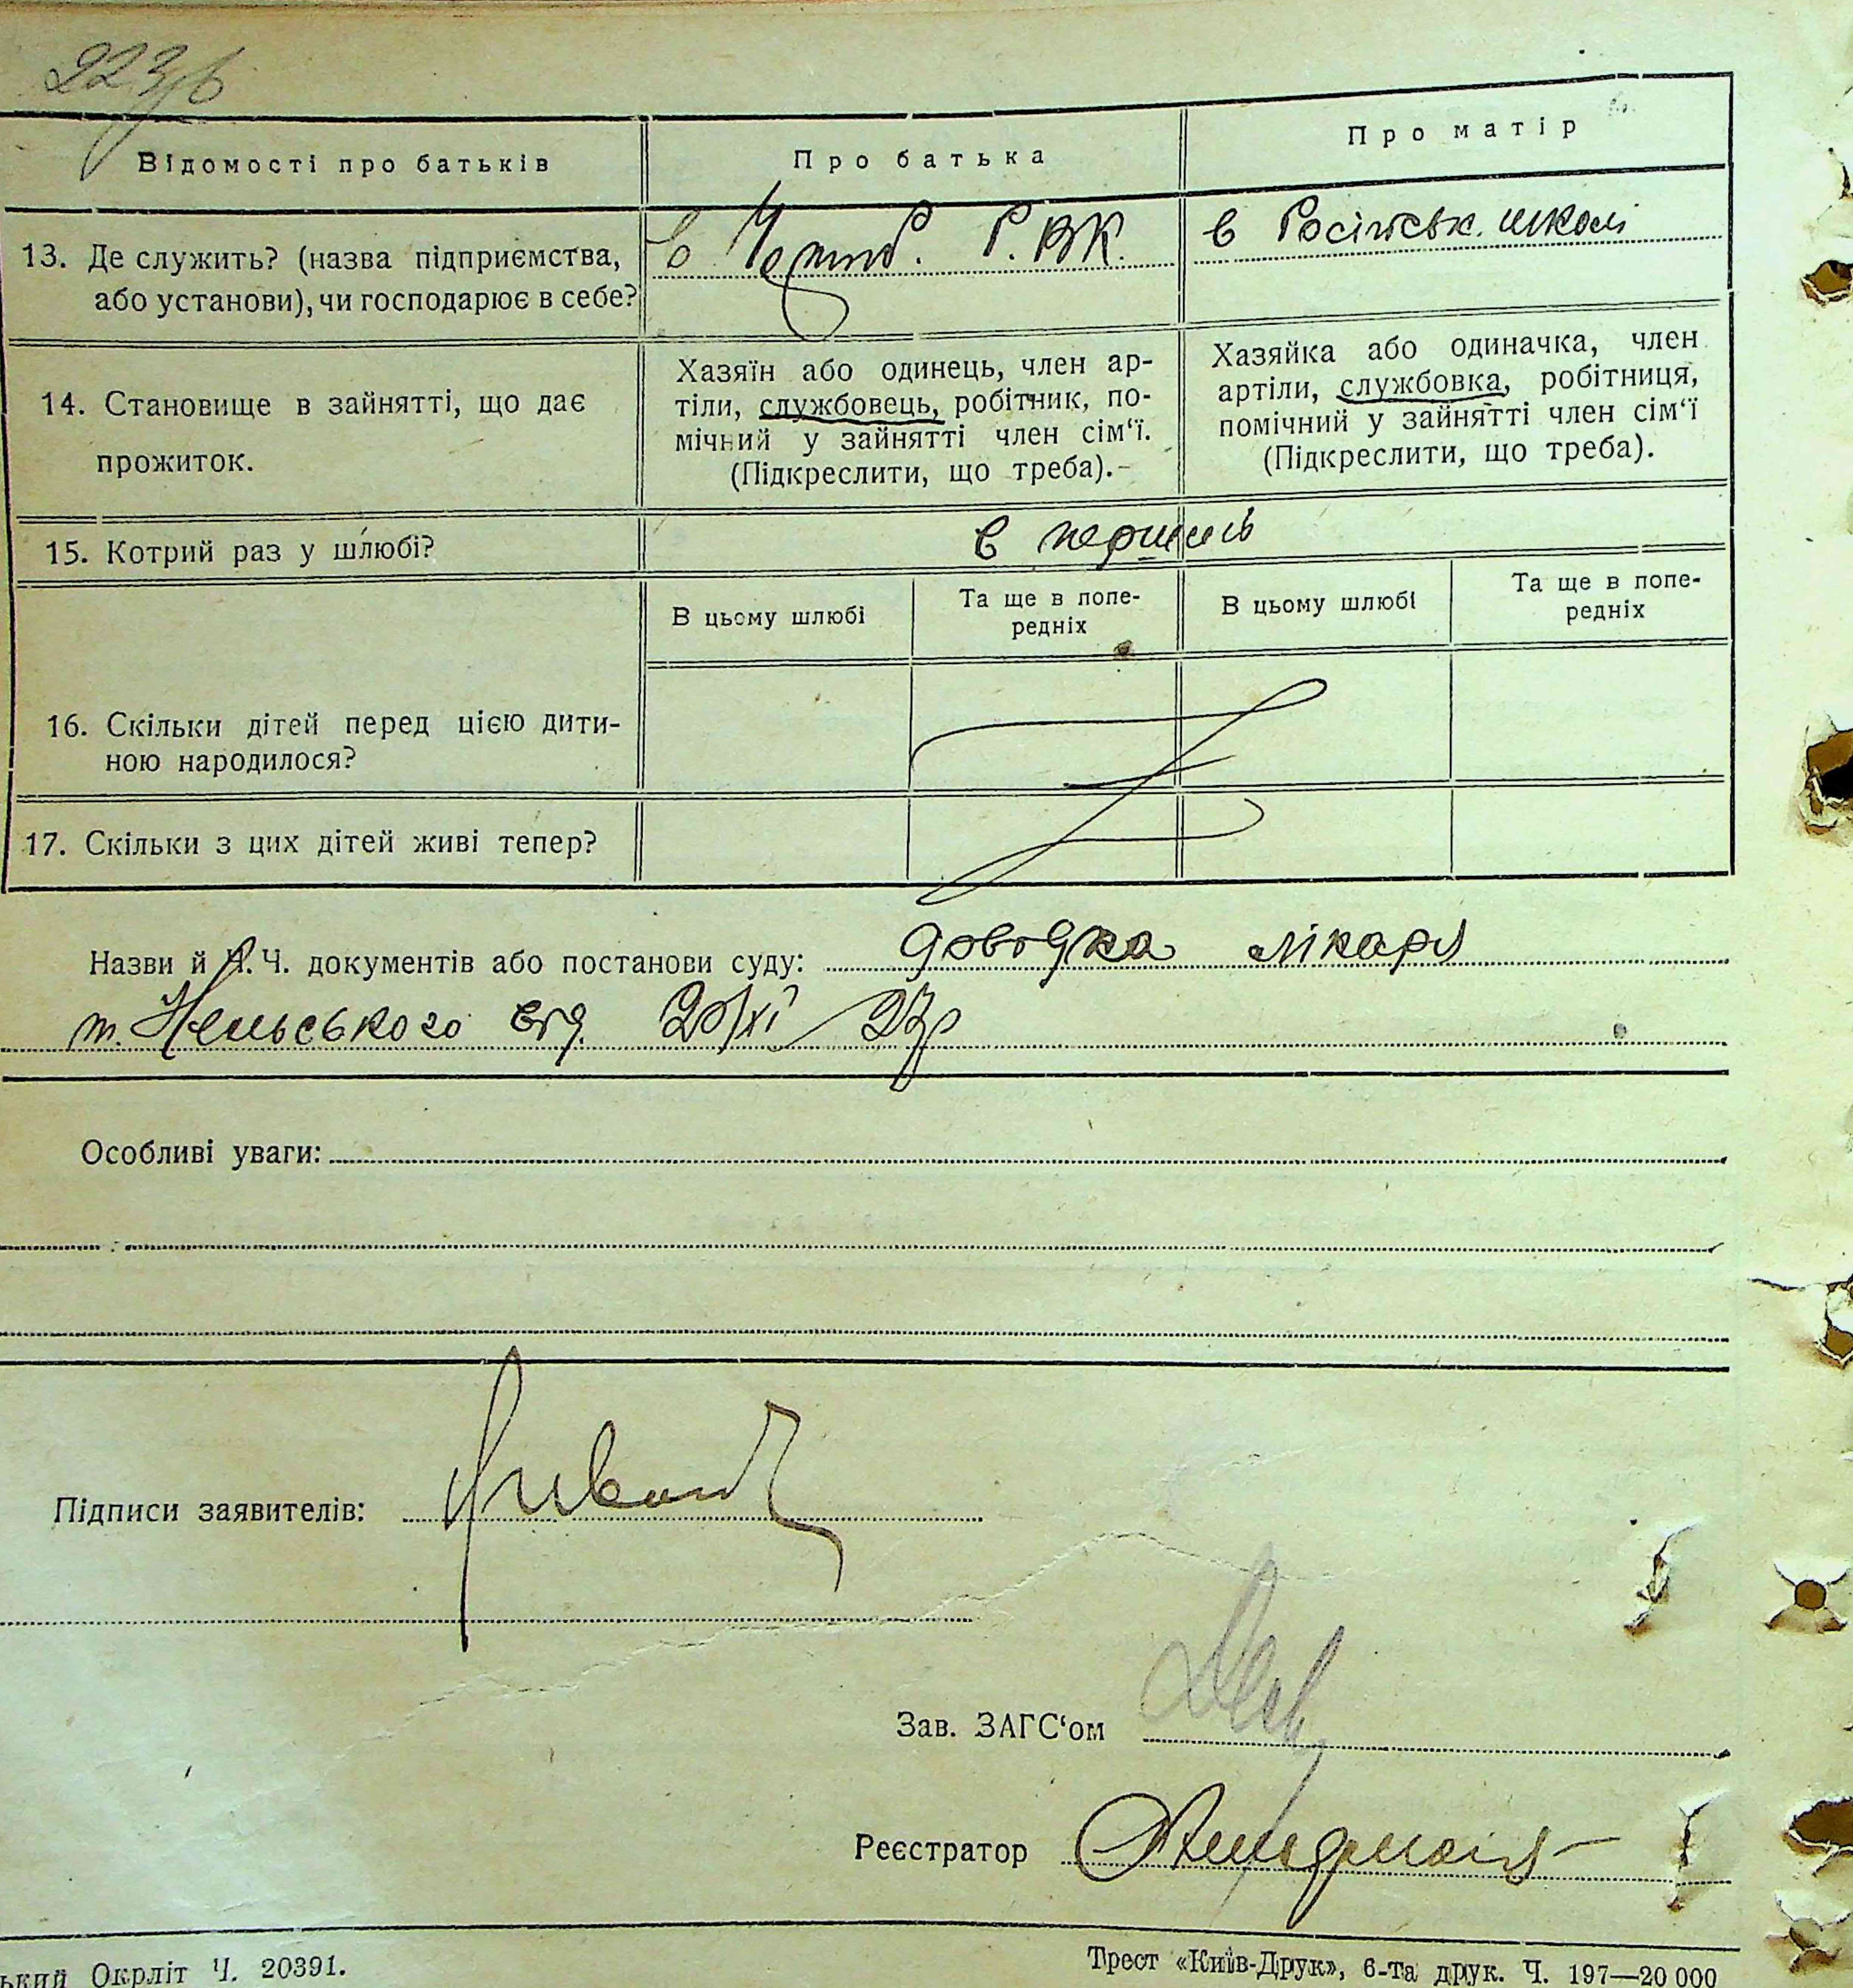 Відомості про батьків
Про батька
Про матір
13. Де служить? (назва підприємства,
або установи), чи господарює в себе?
в Р.ВК.
в Російськ. школі
14. Становище в зайнятті, що дає
прожиток.
Хазяїн або одинець, член ар-
тіли, службовець, робітник, по-
мічний у зайнятті член сім'ї.
(Підкреслити, що треба).
Хазяйка або одиначка, член
артіли, службовка, робітниця,
помічний у зайнятті член сім'ї
(Підкреслити, що треба).
15. Котрий раз у шлюбі?
в перший
В цьому шлюбі
Та ще в попе-
редніх
В цьому шлюбі
Та ще в попе-
редніх
16. Скільки дітей перед цією дити-
ною народилося?
17. Скільки з цих дітей живі тепер?
Назви й Ч.Ч. документів або постанови суду: довідка лікаря
від. 20/XI 27р
Особливі уваги:
Підписи заявителів:
Зав. ЗАГС'ом
Реєстратор
ький Окрліт Ч. 20391.
Трест «Київ-Друк», 6-та друк. Ч. 197—20 000